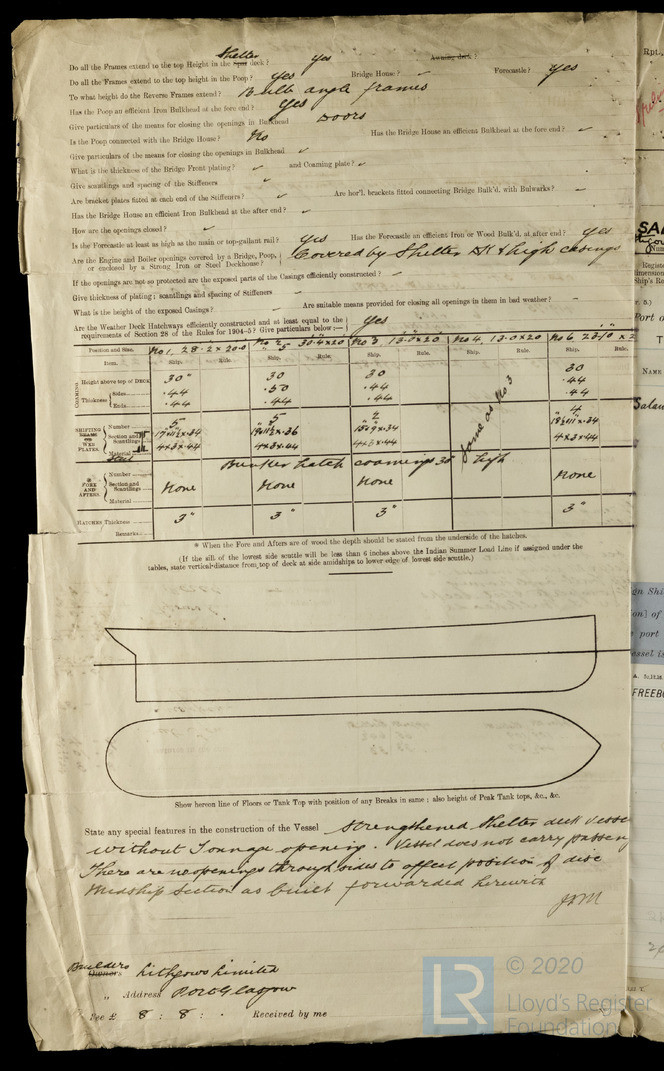 Do all the Frames extend to the top Height in the Spar Shelter deck? Yes Awning deck?
Do all the Frames extend to the top height in the Poop? Yes Bridge House? ✓ Forecastle? Yes
To what height do the Reverse Frames extend? Bulb angle frames
Has the Poop an efficient Iron Bulkhead at the fore end? Yes
Give particulars of the means for closing the openings in Bulkhead Doors
Is the Poop connected with the Bridge House? No Has the Bridge House an efficient Bulkhead at the fore end? ✓
Give particulars of the means for closing the openings in Bulkhead ✓
What is the thickness of the Bridge Front plating? ✓ and Coaming plate? ✓
Give scantlings and spacing of the Stiffeners ✓
Are bracket plates fitted at each end of the Stiffeners? ✓ Are hor'l. brackets fitted connecting Bridge Bulk'd. with Bulwarks? -
Has the Bridge House an efficient Bulkhead at the after end? ✓
How are the openings closed? ✓
Is the Forecastle at least as high as the main or top-gallant rail? Yes Has the Forecastle an efficient Iron or Wood Bulk'd. at after end? Yes
Are the Engine and Boiler openings covered by a Bridge, Poop, or enclosed by a Strong Iron or Steel Deckhouse? Covered by Shelter DK & high casings
If the openings are not so protected are the exposed parts of the Casings efficiently constructed? -
Give thickness of plating; scantlings and spacing of Stiffeners -
What is the height of the exposed Casings? - Are suitable means provided for closing all openings in them in bad weather? -
Are the Weather Deck Hatchways efficiently constructed and at least equal to the
requirements of Section 28 of the Rules for 1904-5? Give particulars below:— Yes
Position and Size. No 1, 28.2 x 20.0 No 2, 30.4 x 20 No 3, 13.0 x 20 No 4, 13.0 x 20 No 6
Item. Ship. Rule. Ship. Rule. Ship. Rule. Ship. Rule. Ship. Rule.
COAMING Height above top of DECK 30" 30 30 30
Thickness Sides .44 .50 .44 .44
Ends .44 .44 .44 .44
same as No 3
SHIFTING BEAMS OR WEB PLATES. Number 5 5 2 4
Section and Scantlings
4x3x.44 4x3x.44 4x3x.44 4x3x.44
Material Steel
Bunker hatch coamings 30" high
* FORE AND AFTERS. Number
Section and Scantlings None None None None
Material
HATCHES Thickness 3" 3" 3" 3"
Remarks
* When the Fore and Afters are of wood the depth should be stated from the underside of the hatches.
(If the sill of the lowest side scuttle will be less than 6 inches above the Indian Summer Load Line if assigned under the
tables, state vertical distance from top of deck at side amidships to lower edge of lowest side scuttle.)
Show hereon line of Floors or Tank Top with position of any Breaks in same; also height of Peak Tank tops, &c., &c.
State any special features in the construction of the Vessel Strengthened Shelter deck Vesse
without Tonnage opening. Vessel does not carry passeng
There are no openings through sides to affect position of disc
Midship Section as built forwarded herewith
JBM
Builders Owners Lithgows Limited
" Address Port Glasgow
Fee £ 8 : 8 : . Received by me
© 2020
LR
Lloyd's Register
Foundation
Rpt.
SA
Registe
imension
Ship's Ro
Port o
T
NAME
Salau
gn Shi
on] of
port
essel is
FREEBO